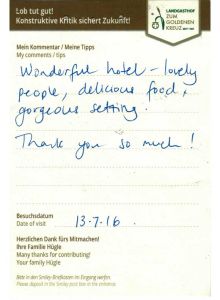 Lob tut gut!
Konstruktive Kritik sichert Zukunft!
LANDGASTHOF
ZUM
GOLDENEN
KREUZ
Mein Kommentar / Meine Tipps
My comments / tips
Wonderful hotel – lovely
people, delicious food,
gorgeous setting.
Thank you so much!
Besuchsdatum
Date of visit
13.7.16
Herzlichen Dank fürs Mitmachen!
Ihre Familie Hügle
Many thanks for contributing!
Your family Hügle
Bitte in den Smiley-Briefkasten im Eingang werfen.
Please deposit in the Smiley post box in the entrance.